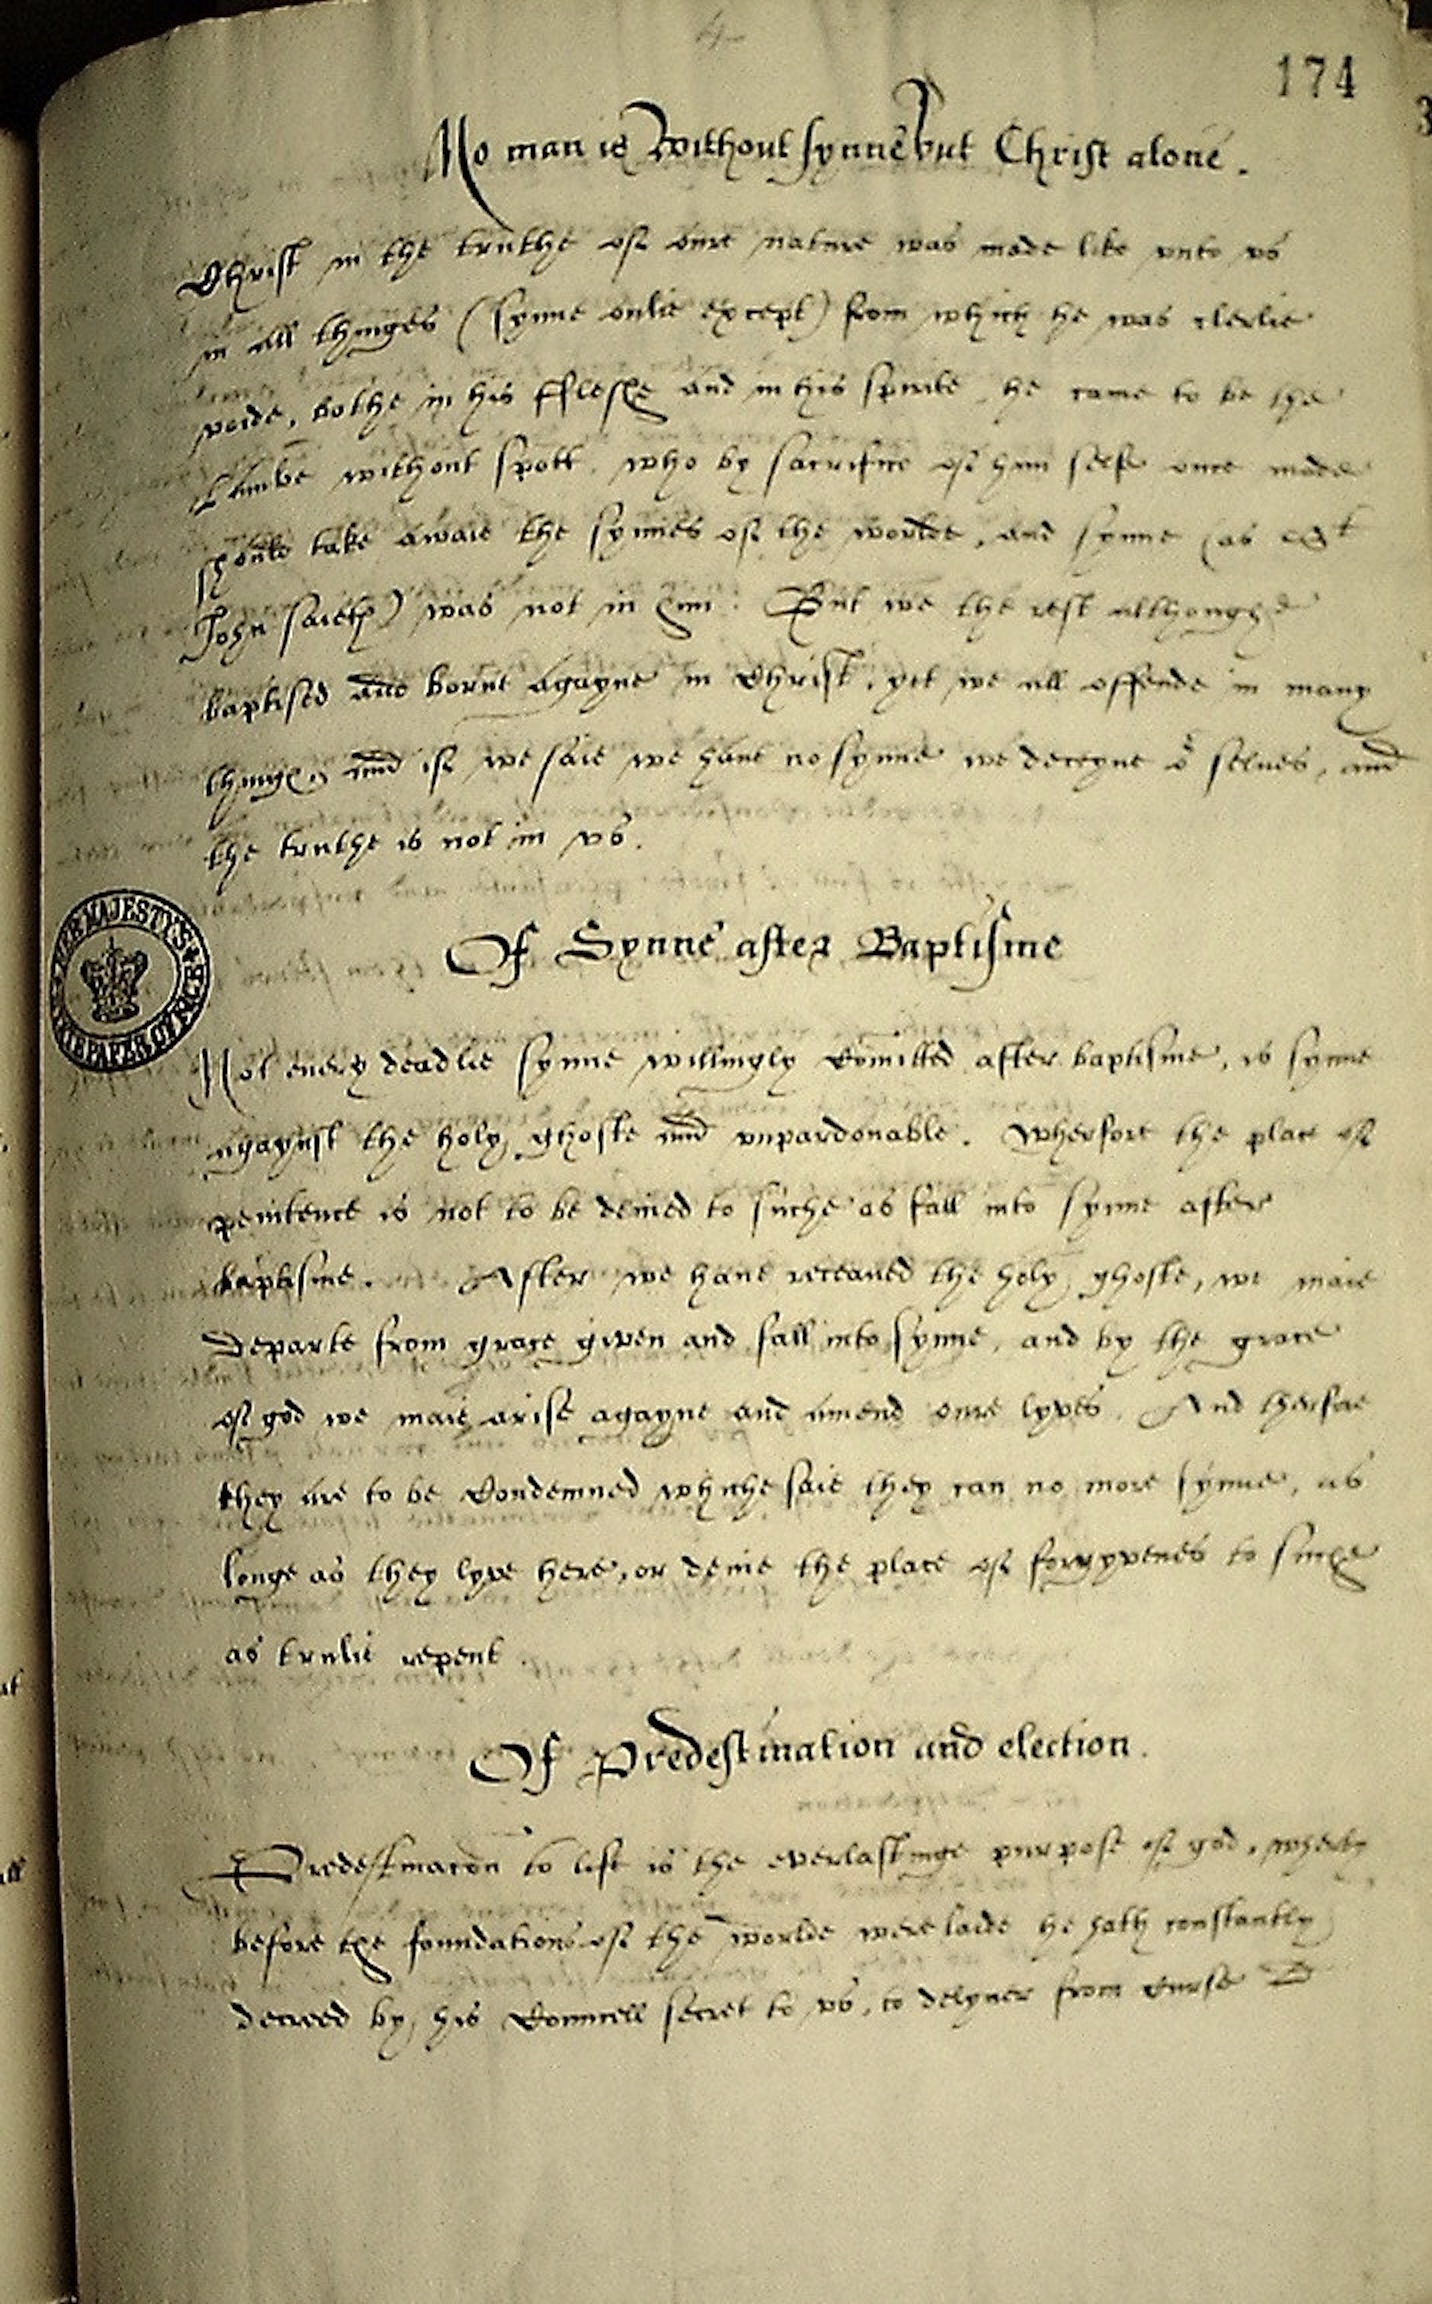 4
174
3
No man is without synne but Christ alone.
Christ in the truthe of oure nature was made like vnto vs
in all thinges (synne onlie except) from which he was clerlie
voide, bothe in his ffleshe and in his spirite he came to be the
Lambe without spott, who by sacrifice of him self once made
shoulde take awaie the synnes of the worlde, and synne (as St
John saieth) was not in him. But we the rest althoughe
baptised and borne agayne in Christ, yet we all offende in many
thinges, and if we saie we haue no synne we deceyue or selues, and
the truthe is not in vs.
Of Synne after Baptisme
HER MAJESTY'S
STATE PAPER OFFICE
Not euery deadlie synne willingly comitted after baptisme, is synne
agaynst the holy ghoste and vnpardonable. Wherfore the place of
penitence is not to be denied to suche as fall into synne after
baptisme. After we haue receaued the holy ghoste, we maie
departe from grace given and fall into synne, and by the grace
of god we maie arise agayne and amend oure lyves. And therfore
they are to be condemned whiche saie they can no more synne, as
longe as they lyve here, or denie the place of forgyvenes to suche
as trulie repent.
Of Predestination and election.
Predestinacon to life is the everlastinge purpose of god, wherby
before the foundations of the worlde were laide he hath constantly
decreed by his Councell secret to vs, to delyuer from curse &